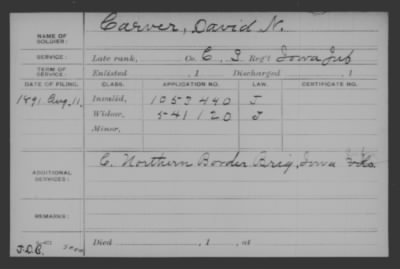 Carver, David N.
NAME OF
SOLDIER:
SERVICE: Late rank, Co. C, 3 Reg't Iowa Inf
TERM OF
SERVICE: Enlisted , 1 Discharged , 1
DATE OF FILING. CLASS. APPLICATION NO. LAW. CERTIFICATE NO.
1891. Aug. 11. Invalid, 1053440 J
Widow, 541120 J
Minor,
C. Northern Border Brig, Iowa Vols.
ADDITIONAL
SERVICES:
REMARKS:
Died , 1 , at